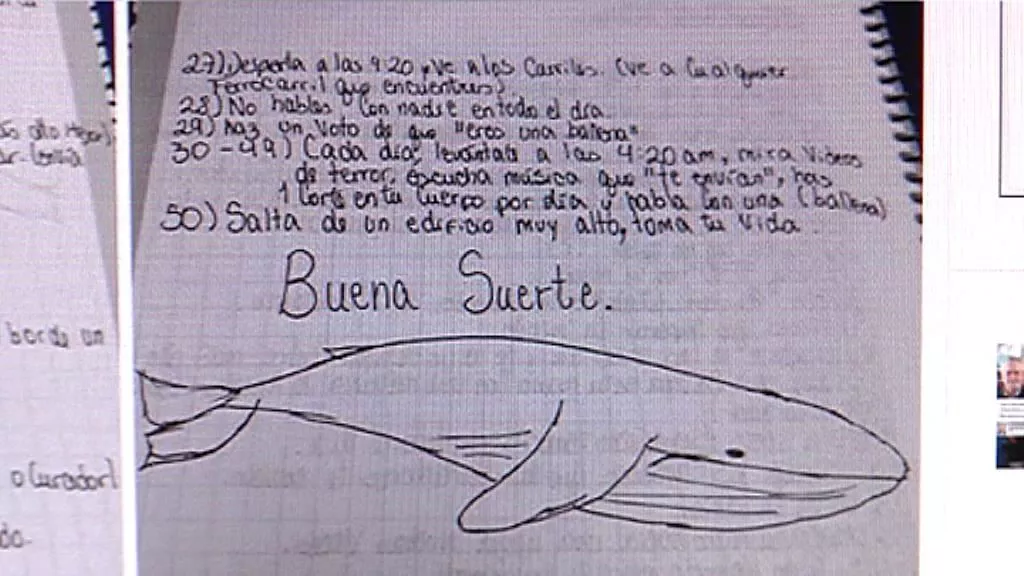 27) Despierta a las 4:20 y ve a las Carriles. (ve a Cualquier
ferrocarril que encuentres)
28) No hables con nadie en todo el día
29) Haz un Voto de que "eres una ballena"
30-49) Cada día, levántate a las 4:20 am, mira Videos
de terror, escucha música que "te envían", haz
1 Corte en tu Cuerpo por día y habla con una (ballena)
50) Salta de un edificio muy alto, toma tu vida.
Buena Suerte.
borde un
o Curador)
do.